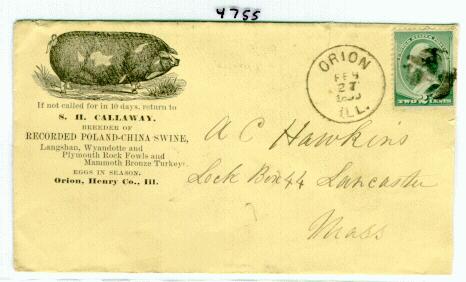 4755
If not called for in 10 days, return to
S. H. CALLAWAY,
BREEDER OF
RECORDED POLAND-CHINA SWINE,
Langshan, Wyandotte and
Plymouth Rock Fowls and
Mammoth Bronze Turkeys.
EGGS IN SEASON.
Orion, Henry Co., Ill.
ORION
FEB
27
ILL.
TWO 2 CENTS
A C Hawkins
Lock Box 44 Lancaster
Mass